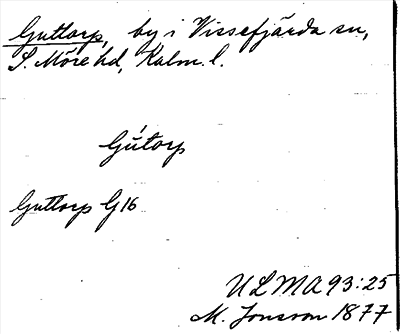 Guttorp, by i Vissefjärda sn,
S. Möre hd, Kalm. l.
Gútorp
Guttorp G16
ULMA 93:25
M. Jonsson 1877